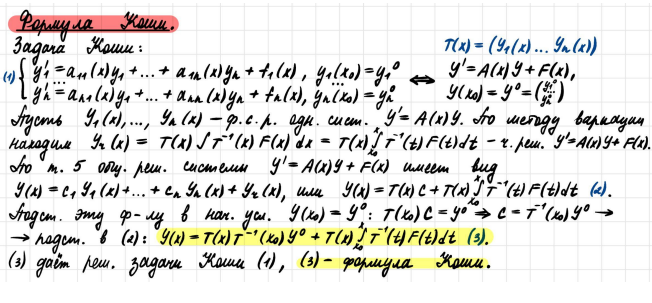 Формула Коши.
Задача Коши: T(x) = (Y₁(x) ... Yₙ(x))
(1) { y₁' = a₁₁(x)y₁ + ... + a₁ₙ(x)yₙ + f₁(x), y₁(x₀) = y₁⁰ ⇔ Y' = A(x)Y + F(x),
...
yₙ' = aₙ₁(x)y₁ + ... + aₙₙ(x)yₙ + fₙ(x), yₙ(x₀) = yₙ⁰ Y(x₀) = Y⁰ = (y₁⁰ ... yₙ⁰)
Пусть Y₁(x), ..., Yₙ(x) – ф.с.р. одн. сист. Y' = A(x)Y. По методу вариации
находим Yч(x) = T(x) ∫ T⁻¹(x) F(x) dx = T(x) ∫ₓ₀ˣ T⁻¹(t) F(t) dt – ч. реш. Y' = A(x)Y + F(x).
По т. 5 общ. реш. системы Y' = A(x)Y + F(x) имеет вид
Y(x) = c₁ Y₁(x) + ... + cₙ Yₙ(x) + Yч(x), или Y(x) = T(x) C + T(x) ∫ₓ₀ˣ T⁻¹(t) F(t) dt (2).
Подст. эту ф-лу в нач. усл. Y(x₀) = Y⁰: T(x₀) C = Y⁰ ⇒ C = T⁻¹(x₀) Y⁰ →
→ подст. в (2): Y(x) = T(x) T⁻¹(x₀) Y⁰ + T(x) ∫ₓ₀ˣ T⁻¹(t) F(t) dt (3).
(3) даёт реш. задачи Коши (1), (3) – формула Коши.